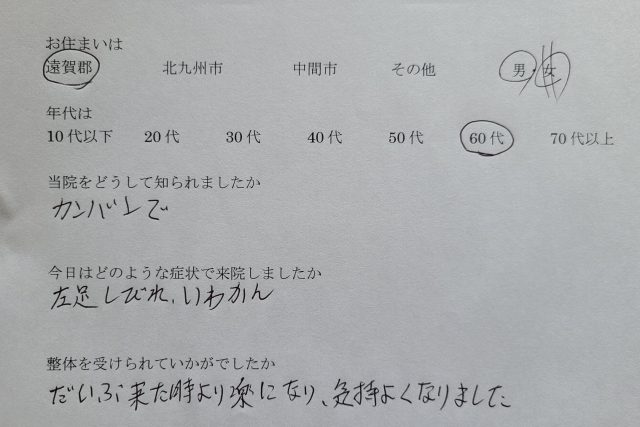 お住まいは
遠賀郡 北九州市 中間市 その他 男・女
年代は
10代以下 20代 30代 40代 50代 60代 70代以上
当院をどうして知られましたか
カンバンで
今日はどのような症状で来院しましたか
左足しびれ、いわかん
整体を受けられていかがでしたか
だいぶ来た時より楽になり、気持よくなりました